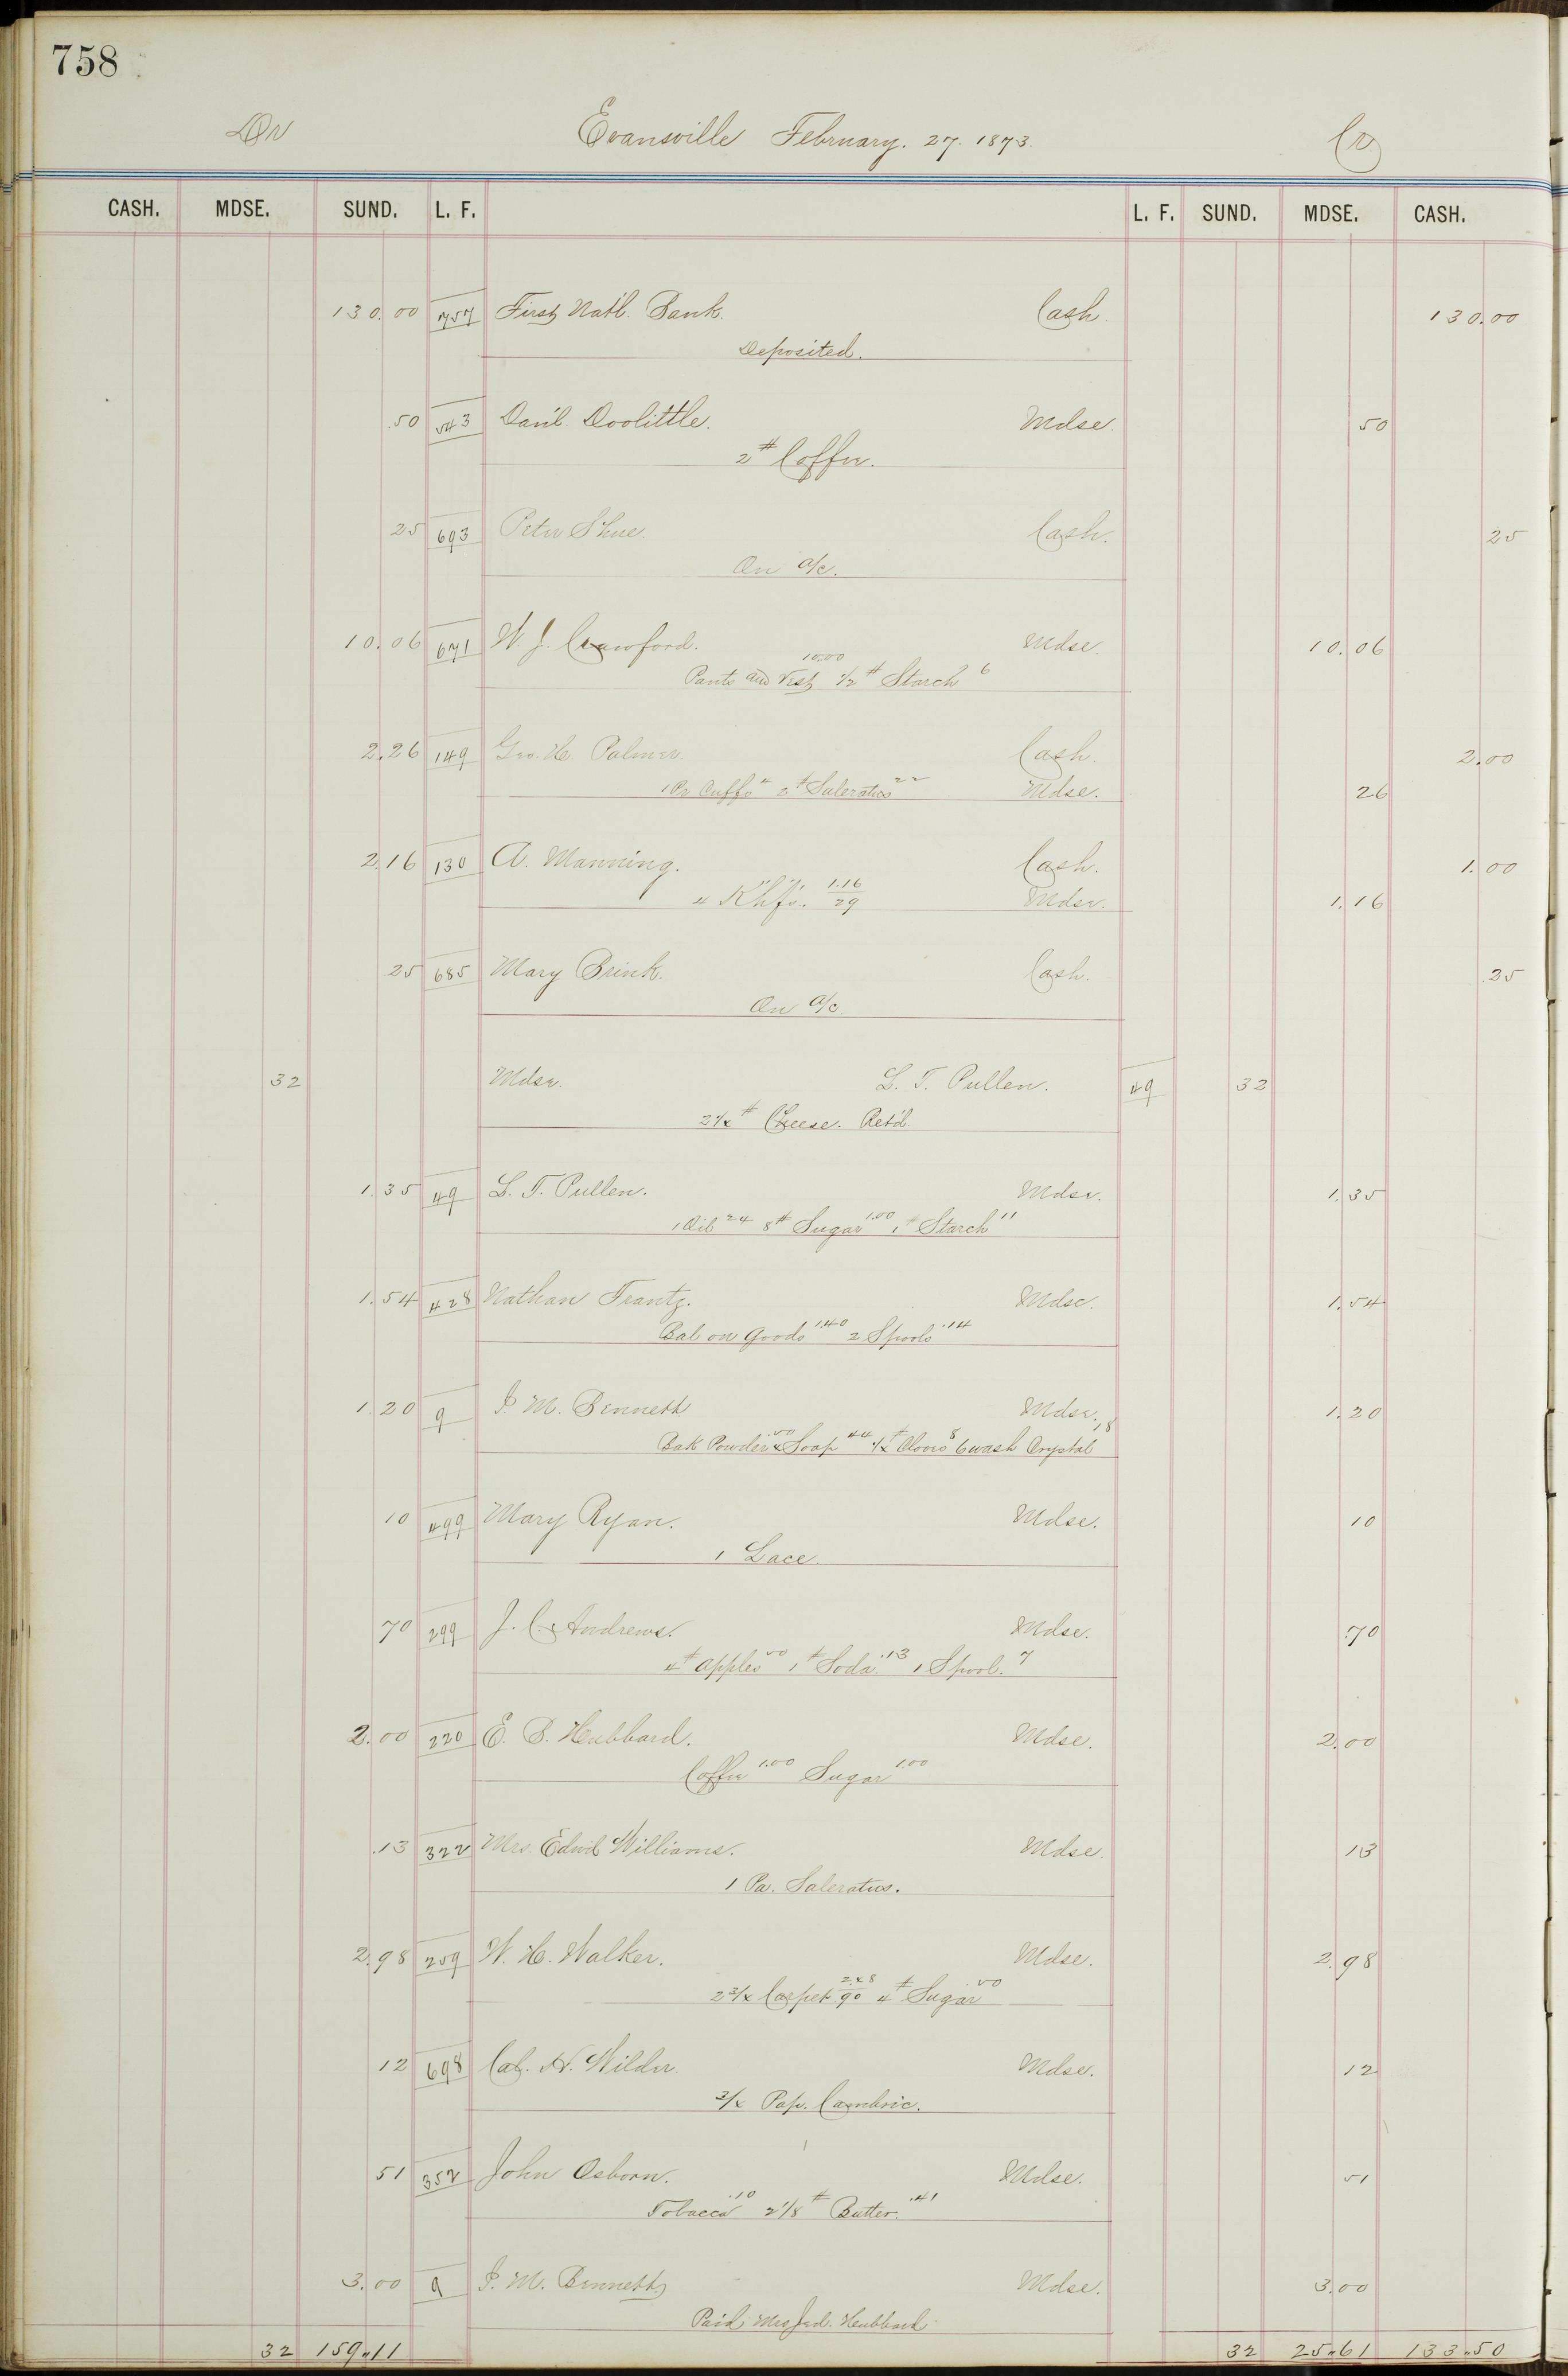 758
Dr Evansville February. 27. 1873. Cr
CASH. MDSE. SUND. L. F. L. F. SUND. MDSE. CASH.
130.00 757 First Nat'l. Bank. Cash. 130.00
Deposited.
.50 543 Dan'l. Doolittle. Mdse. 50
2# Coffee.
25 693 Peter Shue. Cash. 25
On a/c.
10.06 671 W. J. Crawford. Mdse. 10.06
Pants and Vest 10.00 1/2 # Starch 6
2.26 149 Geo. H. Palmer. Cash. 2.00
1 Pr Cuffs 4 2# Saleratus 22 Mdse. 26
2.16 130 A. Manning. Cash. 1.00
4 K'h'f's. 1.16/29 Mdse. 1.16
25 685 Mary Brink. Cash. .25
On a/c.
32 Mdse. L. T. Pullen. 49 32
2 1/4 # Cheese. Ret'd.
1.35 49 L. T. Pullen. Mdse. 1.35
1 Oil 24 8# Sugar 1.00 1# Starch 11
1.54 428 Nathan Frantz. Mdse. 1.54
Bal on Goods 1.40 2 Spools .14
1.20 9 I. M. Bennett Mdse. 1.20
Bak Powder .50 4 Soap 44 1/4 # Cloves 8 6 wash Crystal .18
10 499 Mary Ryan. Mdse. 10
1 Lace.
70 299 J. C. Andrews. Mdse. .70
4# Apples 50 1# Soda .13 1 Spool. 7
2.00 220 E. B. Hubbard. Mdse. 2.00
Coffee 1.00 Sugar 1.00
.13 322 Mrs. Edwd Williams. Mdse. 13
1 Pa. Saleratus.
2.98 259 W. H. Walker. Mdse. 2.98
2 3/4 Carpet 2.48/90 4# Sugar 50
12 698 Cal. N. Wilder. Mdse. 12
3/4 Pap. Cambric.
51 352 John Osborn. Mdse. 51
Tobacco .10 2 1/8 # Butter. .41
3.00 9 I. M. Bennett Mdse. 3.00
Paid Mrs Hubbard
32 159.11 32 25.61 133.50